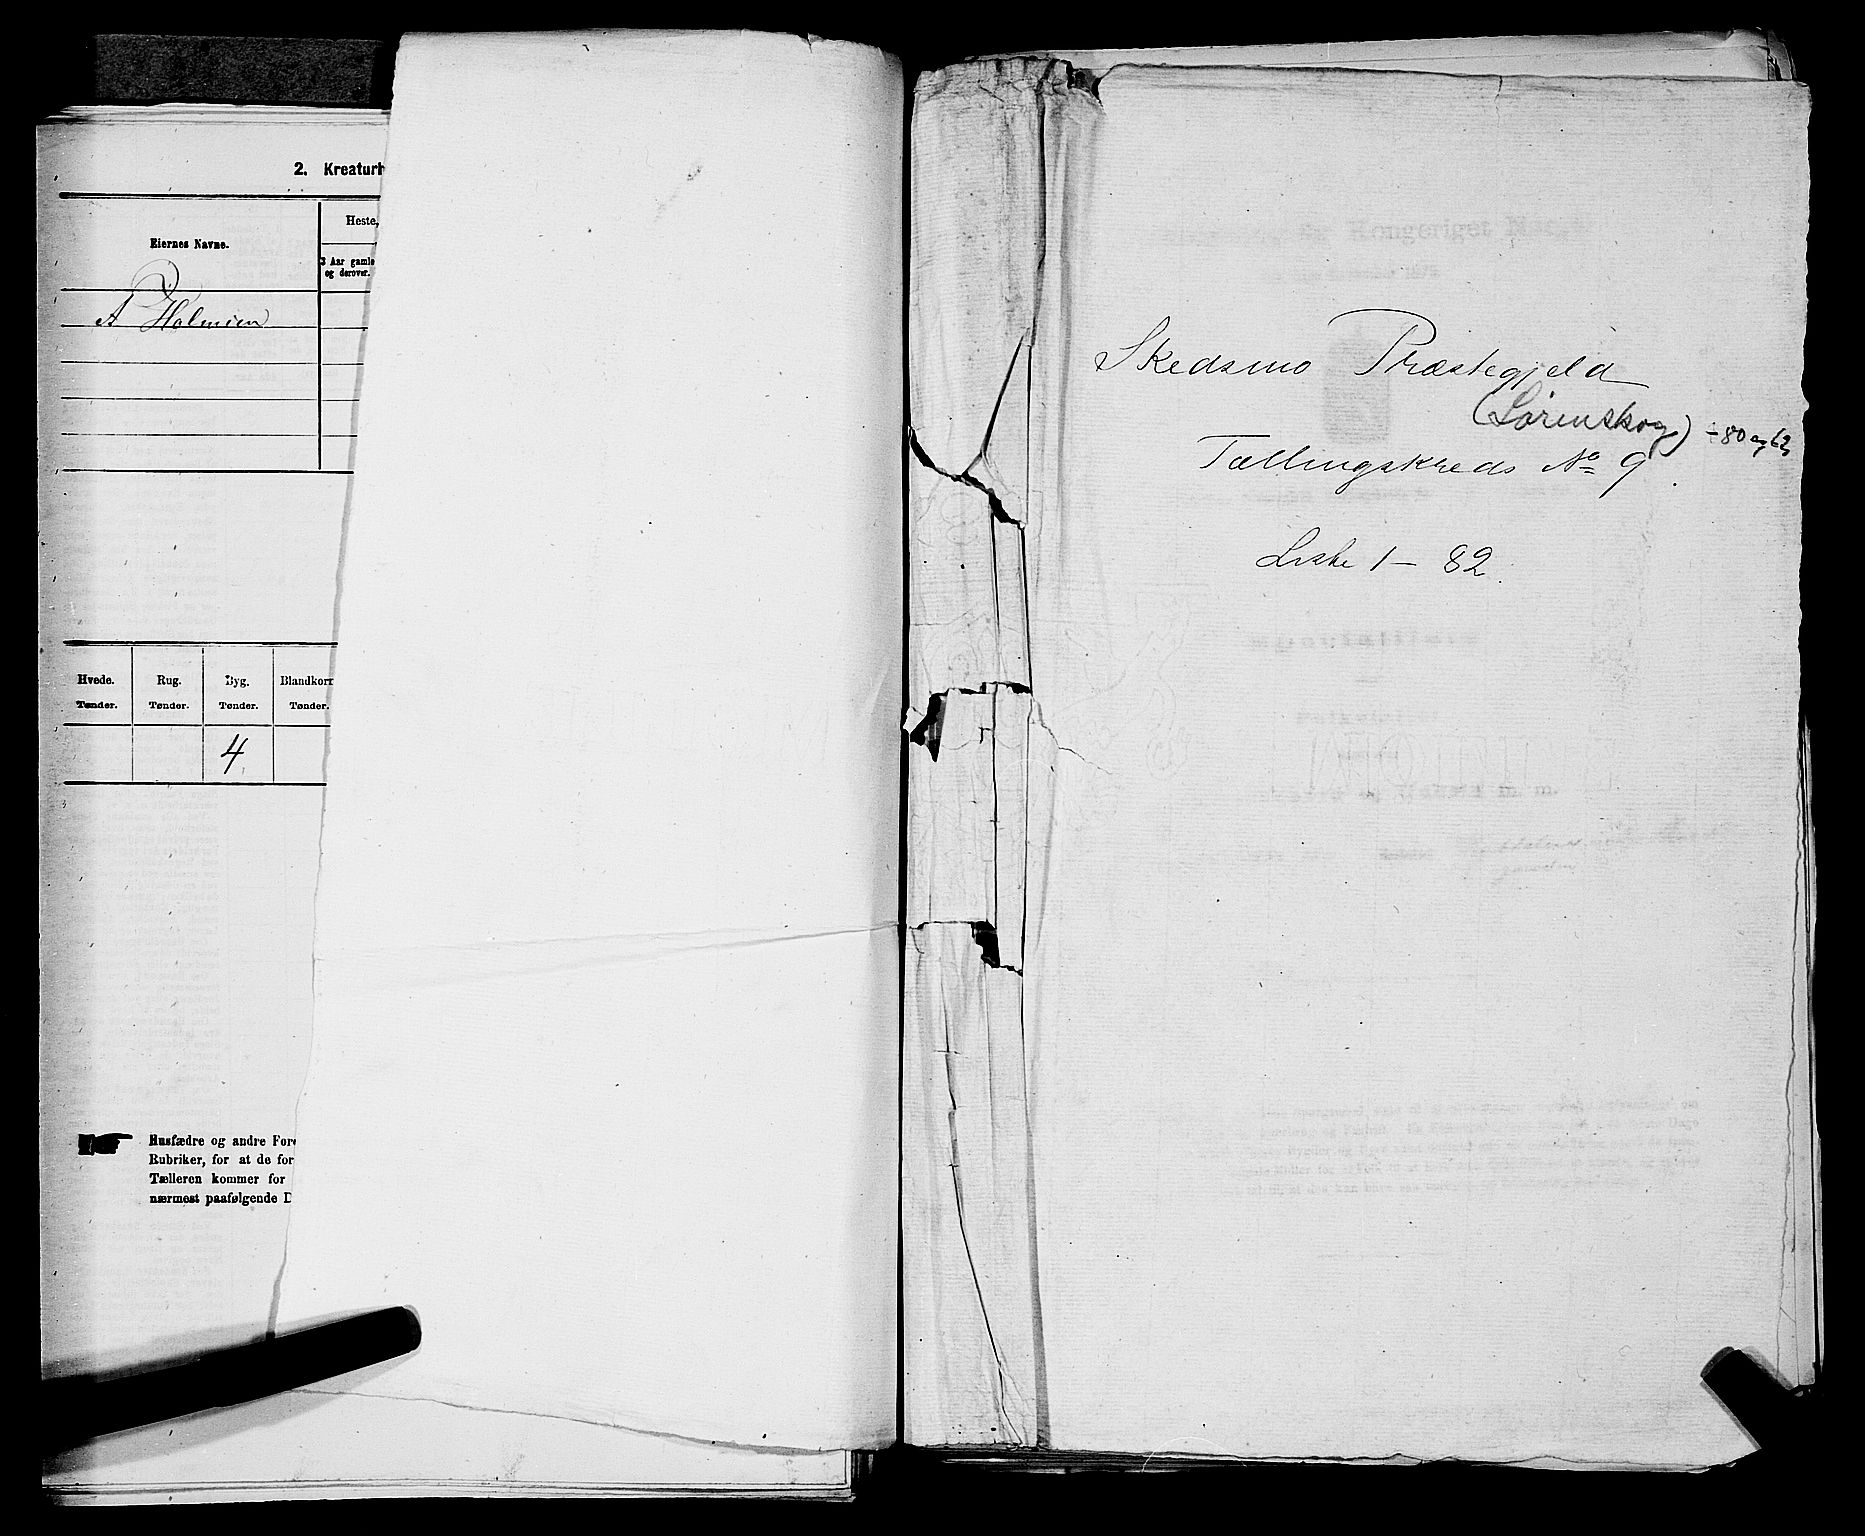 2. Kreaturh
Eiernes Navne.
Heste,
3 Aar gamle
og derover.
A Holmsen
Hvede.
Tønder.
Rug.
Tønder.
Byg.
Tønder.
Blandkorn
Tønder.
4
Husfædre og andre Fore
Rubriker, for at de for
Tælleren kommer for
nærmest paafølgende D
Skedsmo Præstegjeld
(Lørenskog) ÷ 80 og 62
Tællingskreds No 9.
Liste 1 – 82.